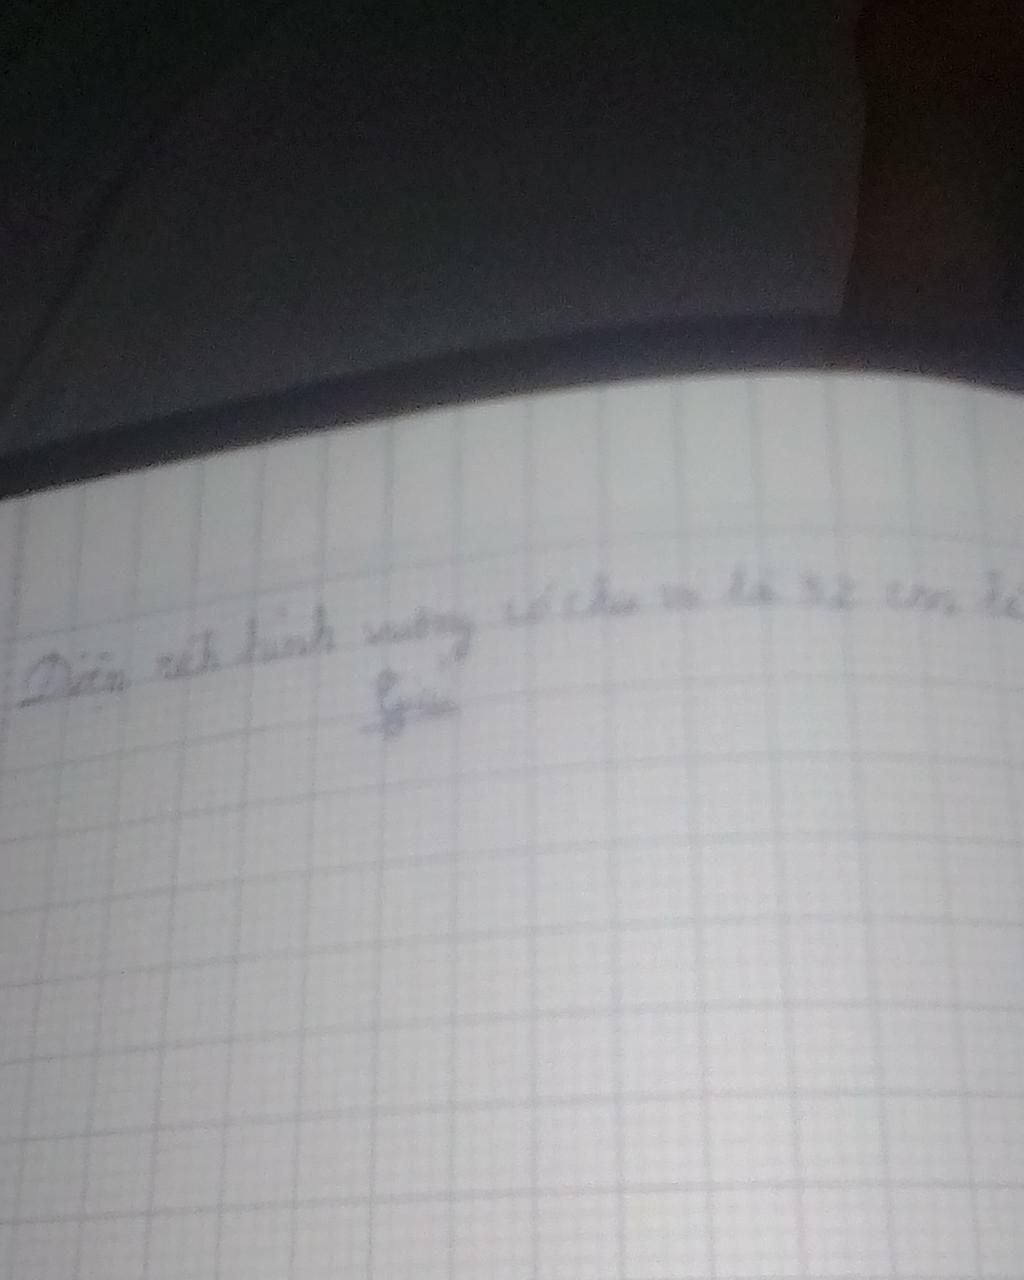 Diện tích hình vuông có chu vi là 32 cm là
Giải